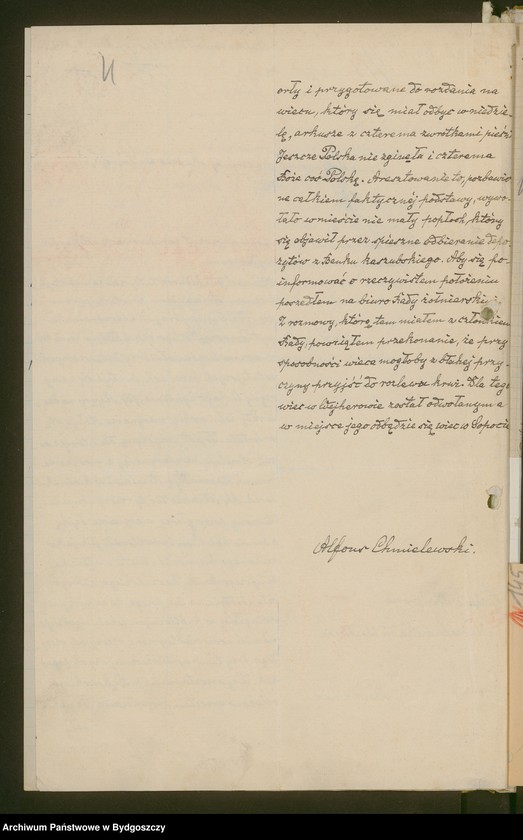 11
orły i przygotowane do rozdania na
wiecu, który się miał odbyć w niedzie-
lę, arkusze z czterema zwrotkami pieśni
Jeszcze Polska nie zginęła i czterema
Boże coś Polskę. Aresztowanie to, pozbawio-
ne całkiem faktycznej podstawy, wywo-
łało w mieście nie mały popłoch, który
się objawił przez spieszne odbieranie depo-
zytów z Banku kaszubskiego. Aby się po-
informować o rzeczywistem położeniu
poszedłem na biuro Rady żołnierskiej.
Z rozmowy, którę tam miałem z członkiem
Rady, powziąłem przekonanie, że przy
sposobności wieca mogłoby z błahej przy-
czyny przyjść do rozlewu krwi. Dla tego
wiec w Wejherowie został odwołanym a
w miejsce jego odbędzie się wiec w Sopocie
Alfons Chmielewski.
145
Archiwum Państwowe w Bydgoszczy